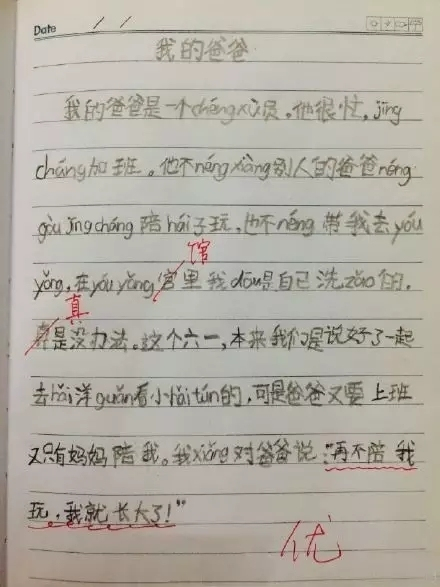 Date / /
我的爸爸
我的爸爸是一个chéngxù员。他很忙,jīng
cháng加班。他不néng xiàng别人的爸爸néng
gòu jīngcháng陪hái子玩,也不néng带我去yóu
馆
yǒng,在yóuyǒng官里我dōu是自己洗zǎo的。
真
是没办法。这个六一,本来我们是说好了一起
去hǎi洋guǎn看小hǎitún的,可是爸爸又要上班
又只有妈妈陪我。我xiǎng对爸爸说:"再不陪我
玩,我就长大了!"
优